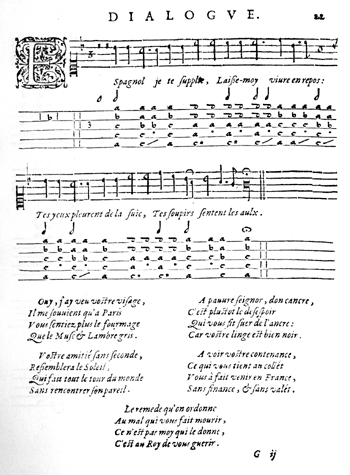 DIALOGVE.
22
Espagnol je te supplie, Laiße-moy viure en repos:
Tes yeux pleurent de la suie, Tes soupirs sentent les aulx.
Ouy, j'ay veu vostre visage,
Il me souuient qu'a Paris
Vous sentiez plus le fourmage
Que le Musc & Lambre gris.
Vostre amitié sans seconde,
Reßemblera le Soleil,
Qui fait tout le tour du monde
Sans rencontrer son pareil.
A pauure seignor, don cancre,
C'est plustot le desespoir
Qui vous fit suer de l'ancre:
Car vostre linge est bien noir.
A voir vostre contenance,
Ce qui vous tient au costé
Vous à fait venir en France,
Sans finance, & sans valet.
Le remede qu'on ordonne
Au mal qui vous fait mourir,
Ce n'est par moy qui le donne,
C'est au Roy de vous guerir.
G ij